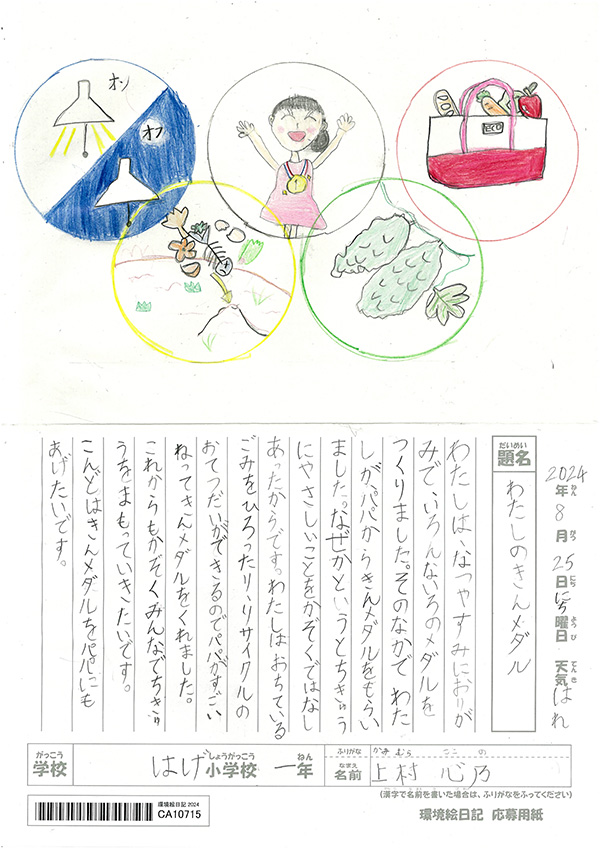 オン
オフ
ECO
1
2024年ねん8月がつ25日にちにち曜日ようび 天気てんきはれ
題名だいめい わたしのきんメダル
わたしは、なつやすみにおりが
みで、いろんないろのメダルを
つくりました。そのなかでわた
しが、パパからきんメダルをもらい
ました。なぜかというとちきゅう
にやさしいことをかぞくではなし
あったからです。わたしはおちている
ごみをひろったり、リサイクルの
おてつだいができるのでパパがすごい
ねってきんメダルをくれました。
これからもかぞくみんなでちきゅ
うをまもっていきたいです。
こんどはきんメダルをパパにも
あげたいです。
学校がっこう はげ小学校しょうがっこう 一年ねん ふりがな かみむら ここの
名前なまえ 上村 心乃
(漢字で名前を書いた場合は、ふりがなをふってください)
環境絵日記 2024
CA10715
環境絵日記 応募用紙